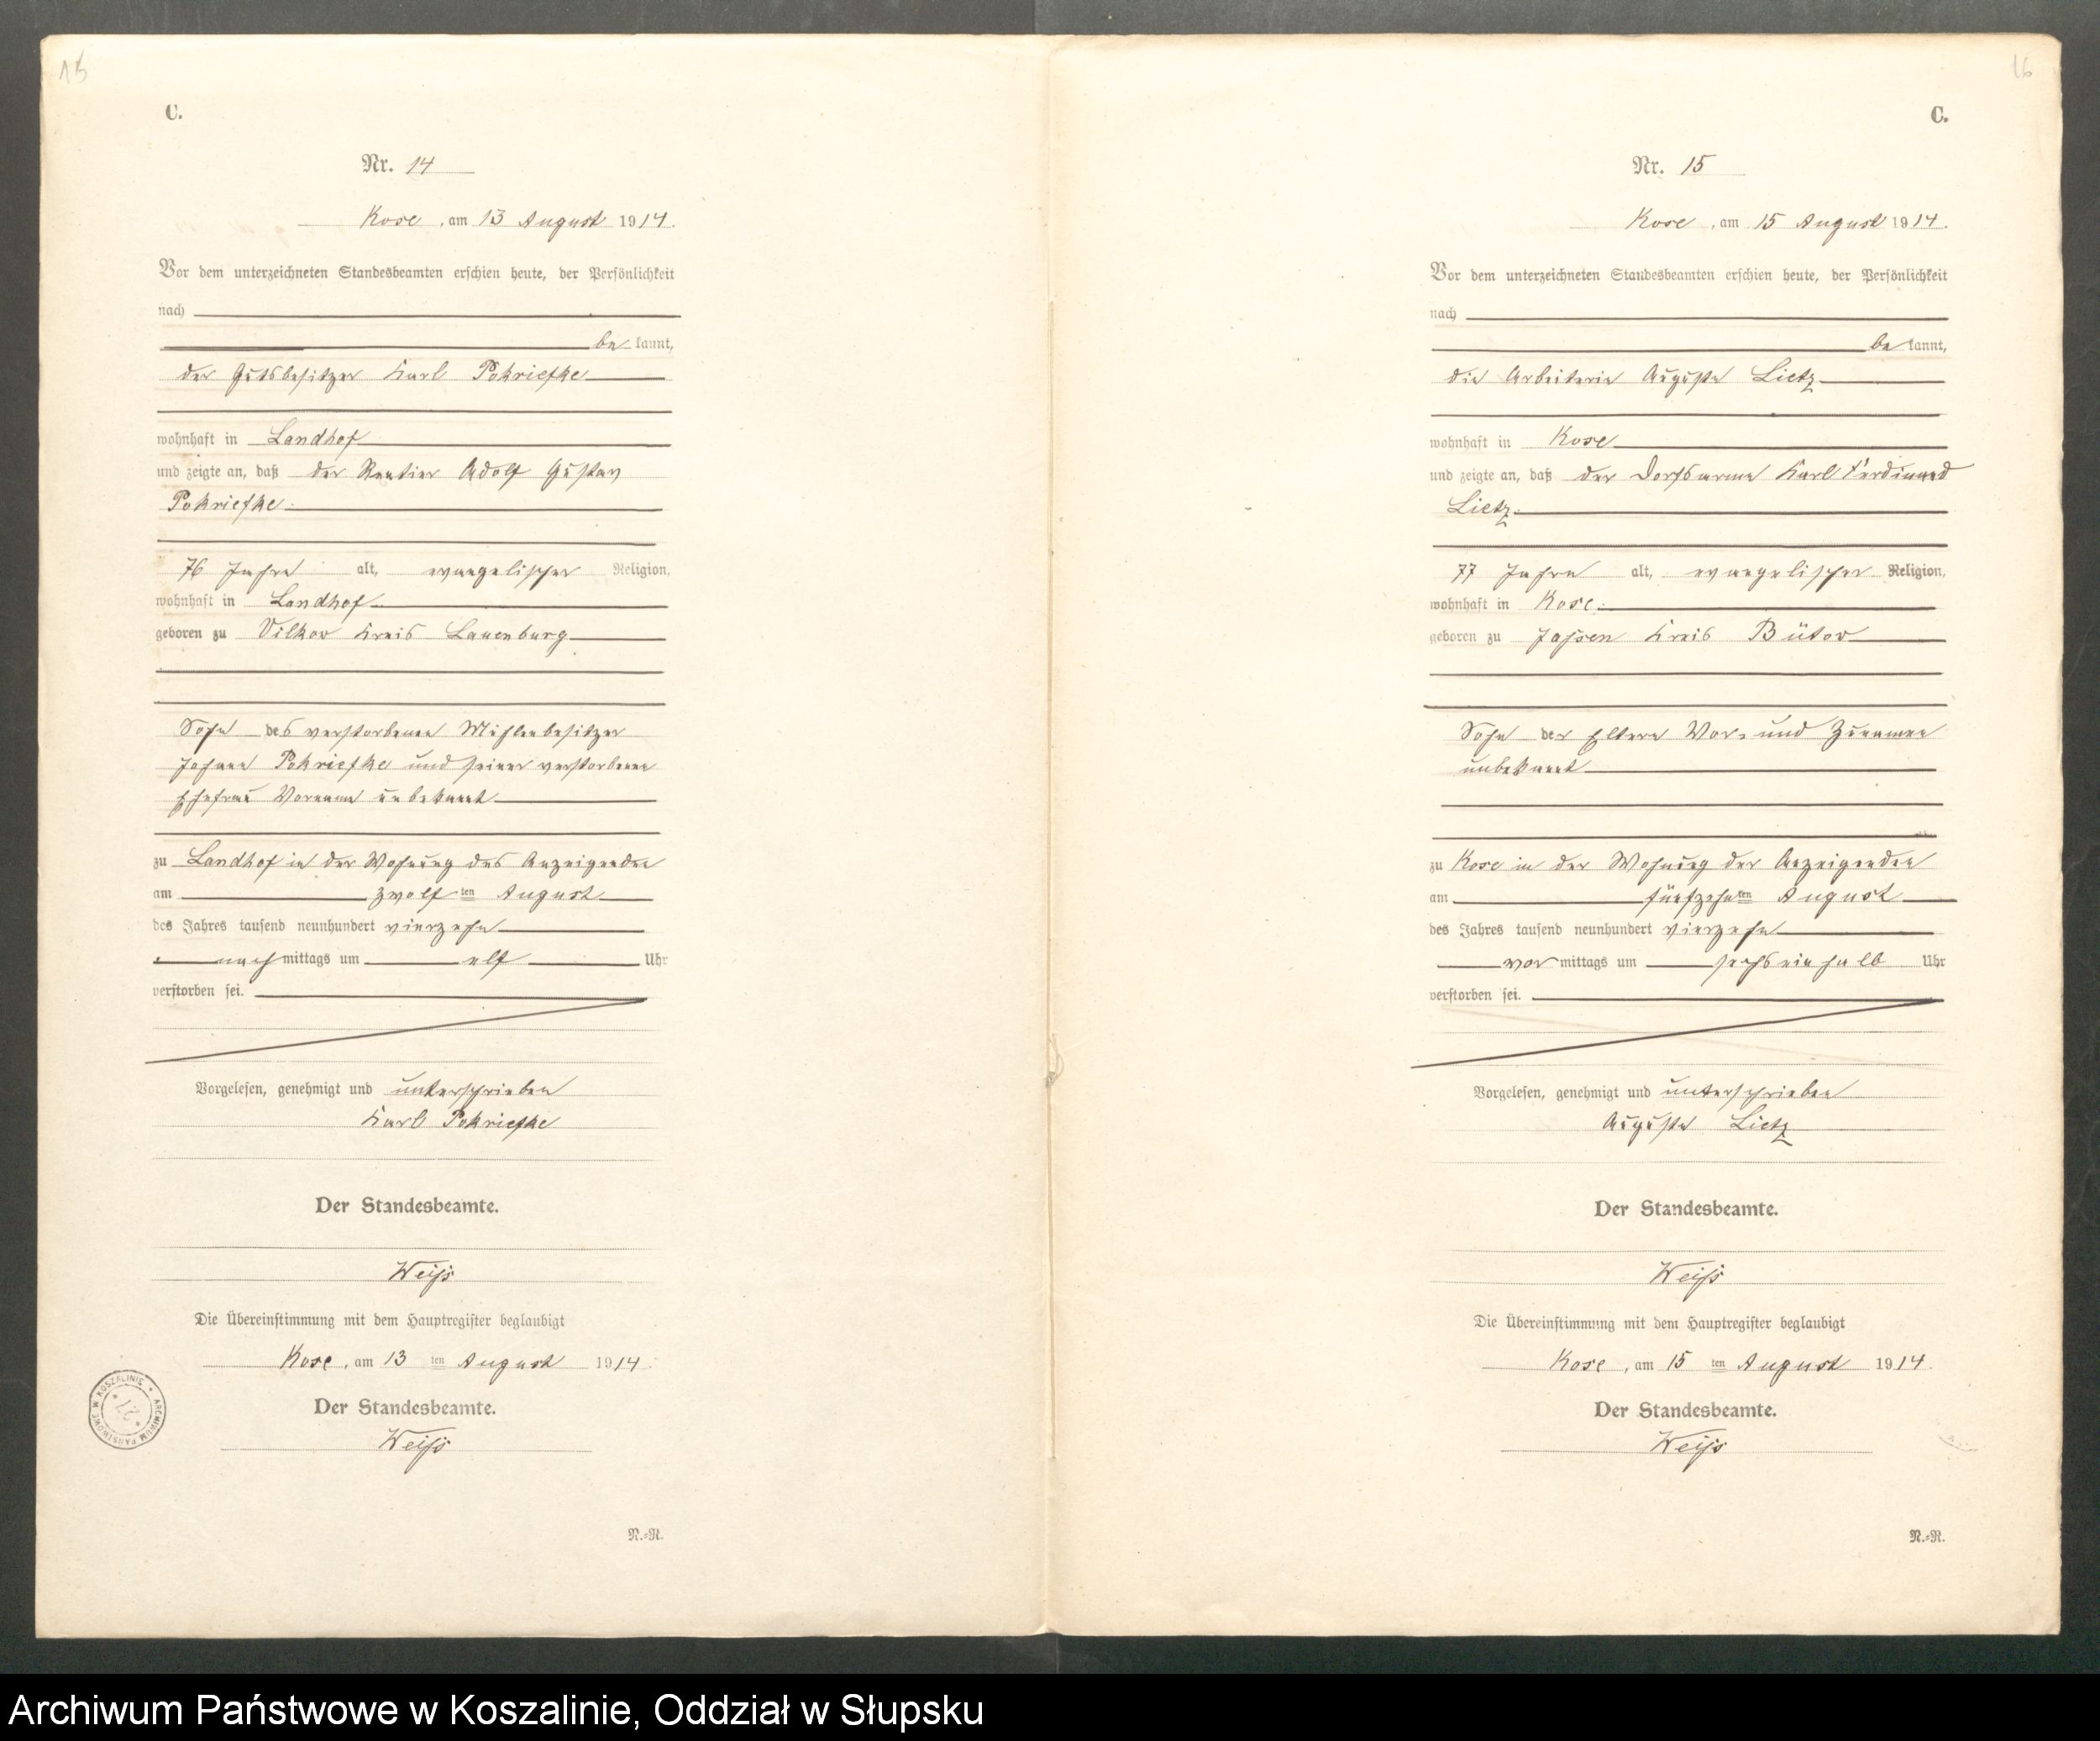 15
C.
Nr. 14
Kose, am 13 August 1914.
Vor dem unterzeichneten Standesbeamten erschien heute, der Persönlichkeit
nach
be kannt,
der Gutsbesitzer Karl Pokriefke
wohnhaft in Landhof
und zeigte an, daß der Rentier Adolf Gustav
Pokriefke
76 Jahre alt, evangelischer Religion,
wohnhaft in Landhof
geboren zu Vilkow Kreis Lauenburg
Sohn des verstorbenen Mühlenbesitzer
Johann Pokriefke und seiner verstorbenen
Ehefrau Vorname unbekannt
zu Landhof in der Wohnung des Anzeigenden
am zwölf ten August
des Jahres tausend neunhundert vierzehn
nach mittags um elf Uhr
verstorben sei.
Vorgelesen, genehmigt und unterschrieben
Karl Pokriefke
Der Standesbeamte.
Weiß
Die Übereinstimmung mit dem Hauptregister beglaubigt
Kose, am 13 ten August 1914.
Der Standesbeamte.
Weiß
ARCHIWUM PAŃSTWOWE W KOSZALINIE
* 21 *
N.=R.
16
C.
Nr. 15
Kose, am 15 August 1914.
Vor dem unterzeichneten Standesbeamten erschien heute, der Persönlichkeit
nach
be kannt,
die Arbeiterin Auguste Lietz
wohnhaft in Kose
und zeigte an, daß der Dorfsarme Karl Ferdinand
Lietz
77 Jahre alt, evangelischer Religion,
wohnhaft in Kose
geboren zu Jassen Kreis Bütow
Sohn der Eltern Vor- und Zunamen
unbekannt
zu Kose in der Wohnung der Anzeigenden
am fünfzehn ten August
des Jahres tausend neunhundert vierzehn
vor mittags um sechseinhalb Uhr
verstorben sei.
Vorgelesen, genehmigt und unterschrieben
Auguste Lietz
Der Standesbeamte.
Weiß
Die Übereinstimmung mit dem Hauptregister beglaubigt
Kose, am 15 ten August 1914.
Der Standesbeamte.
Weiß
N.=R.
Archiwum Państwowe w Koszalinie, Oddział w Słupsku